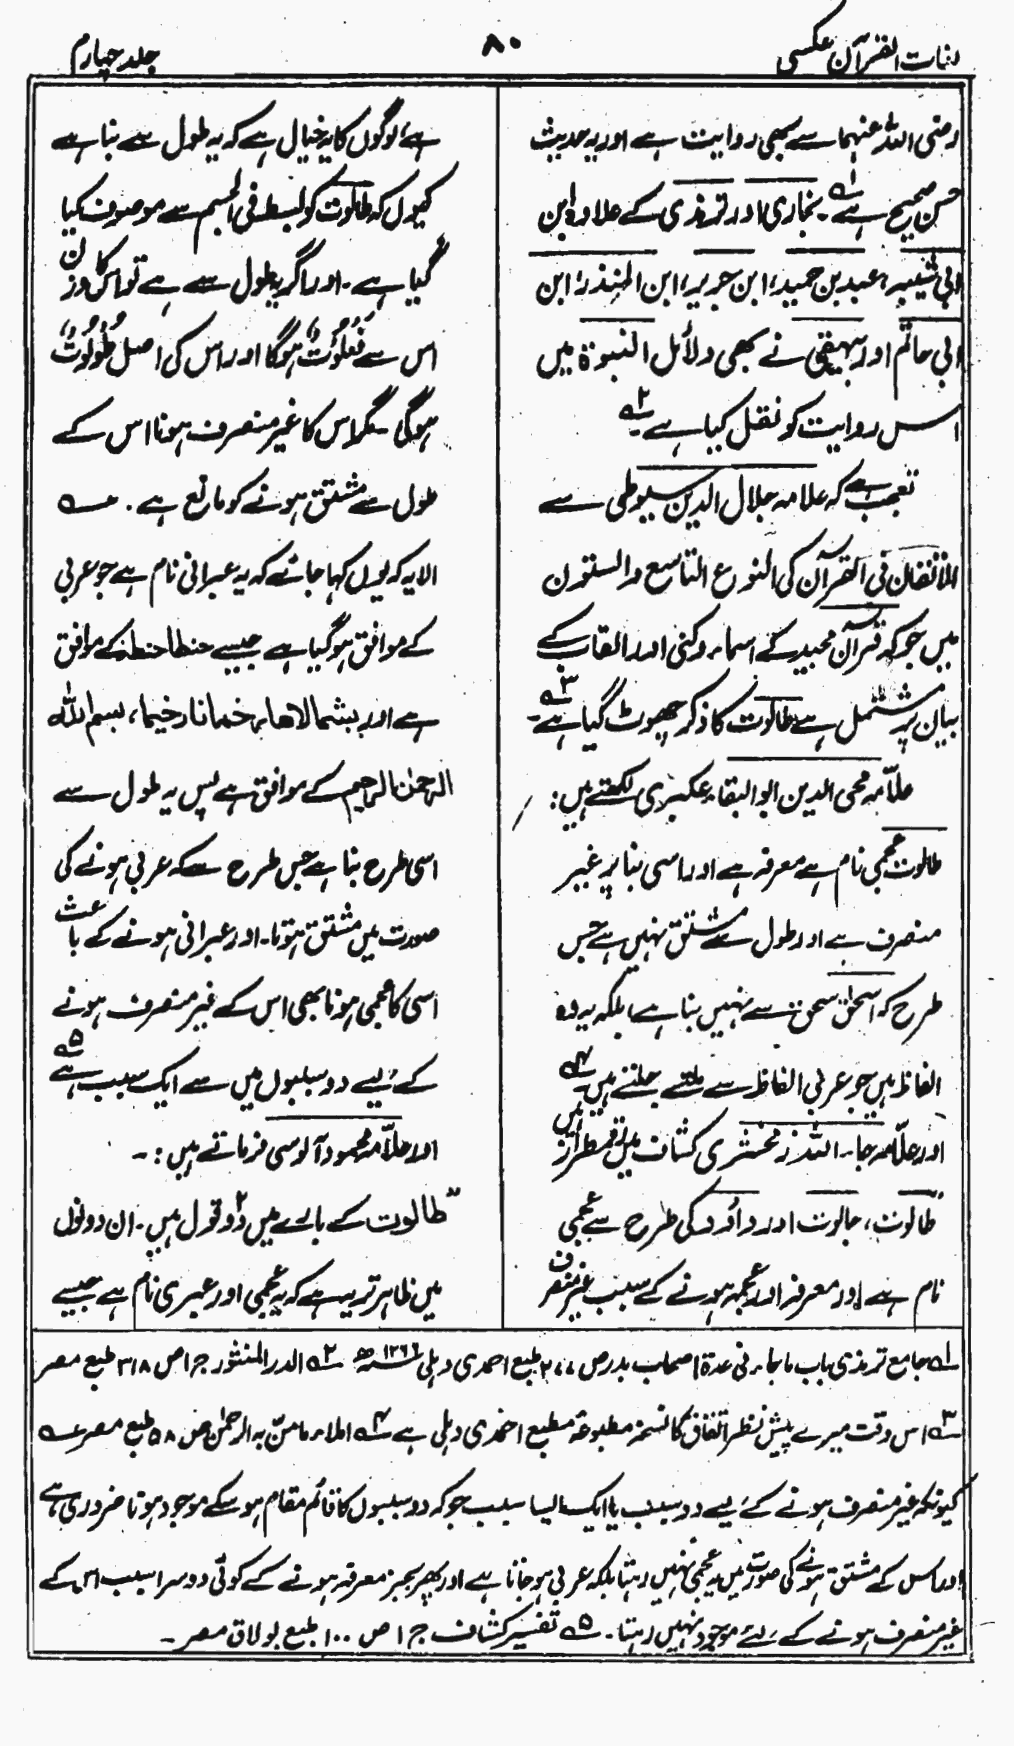 لغات القرآن عکسی
۸۰
جلد چہارم
رضی اللہ عنہما سے بھی روایت ہے اور یہ حدیث
حسن صحیح ہے ۱؎۔ بخاری اور ترمذی کے علاوہ ابن
ابی شیبہ، عبد بن حمید، ابن جریر، ابن المنذر، ابن
ابی حاتم اور بیہقی نے بھی دلائل النبوۃ میں
اس روایت کو نقل کیا ہے ۲؎۔
تعجب ہے کہ علامہ جلال الدین سیوطی سے
الاتقان فی القرآن کی النوع التاسع والستون
میں جو کہ قرآن مجید کے اسماء و کنی اور القاب کے
بیان پر مشتمل ہے طالوت کا ذکر چھوٹ گیا ہے ۳؎۔
علامہ محی الدین ابو البقاء عکبری لکھتے ہیں:
طالوت عجمی نام ہے معرفہ ہے اور اسی بنا پر غیر
منصرف ہے اور طول سے مشتق نہیں ہے جس
طرح کہ اسحٰق سحق سے نہیں بنا ہے، بلکہ یہ وہ
الفاظ ہیں جو عربی الفاظ سے ملتے جلتے ہیں ۴؎
اور علامہ جار اللہ زمخشری کشاف میں رقمطراز ہیں
"طالوت، جالوت اور داؤد کی طرح سے عجمی
نام ہے اور معرفہ اور عجمہ ہونے کے سبب غیر منصرف
ہے، لوگوں کا یہ خیال ہے کہ یہ طول سے بنا ہے
کیوں کہ طالوت کو بسطۃ فی الجسم سے موصوف کیا
گیا ہے۔ اور اگر یہ طول سے ہے تو اس کا وزن
اس سے فَعَلُوْت ہوگا اور اس کی اصل طَوَلُوْت
ہوگی۔ مگر اس کا غیر منصرف ہونا اس کے
طول سے مشتق ہونے کو مانع ہے۔ عہ
الا یہ کہ یوں کہا جائے کہ یہ عبرانی نام ہے جو عربی
کے موافق ہو گیا ہے جیسے حنطا حنطۃ کے موافق
ہے اور بشمالاھا رخمانا رخیما، بسم اللہ
الرحمٰن الرحیم کے موافق ہے پس یہ طول سے
اسی طرح بنا ہے جس طرح سے کہ عربی ہونے کی
صورت میں مشتق ہوتا۔ اور عبرانی ہونے کے باعث
اسی کا عجمی ہونا بھی اس کے غیر منصرف ہونے
کے لیے دو سببوں میں سے ایک سبب ہے ۵؎
اور علامہ محمود آلوسی فرماتے ہیں :۔
"طالوت کے بارے میں دو ۲ قول ہیں۔ ان دونوں
میں ظاہر تر یہ ہے کہ یہ عجمی اور عبری نام ہے جیسے
۱؎ جامع ترمذی باب ما جاء فی عدۃ اصحاب بدر ص ۲۷۷ طبع احمدی دہلی ۱۲۶۶ھ ۲؎ الدر المنثور ج ۱ ص ۳۱۸ طبع مصر
۳؎ اس وقت میرے پیش نظر اتقان کا نسخہ مطبوعہ مطبع احمدی دہلی ہے ۴؎ املاء ما من بہ الرحمٰن ص ۵۸ طبع مصر عہ
کیونکہ غیر منصرف ہونے کے لیے دو سبب یا ایک ایسا سبب جو کہ دو سببوں کا قائم مقام ہو سکے موجود ہونا ضروری ہے
اور اس کے مشتق ہونے کی صورت میں یہ عجمی نہیں رہتا بلکہ عربی ہو جاتا ہے اور پھر بجز معرفہ ہونے کے کوئی دوسرا سبب اس کے
غیر منصرف ہونے کے لئے موجود نہیں رہتا۔ ۵؎ تفسیر کشاف ج ۱ ص ۱۰۰ طبع بولاق مصر۔